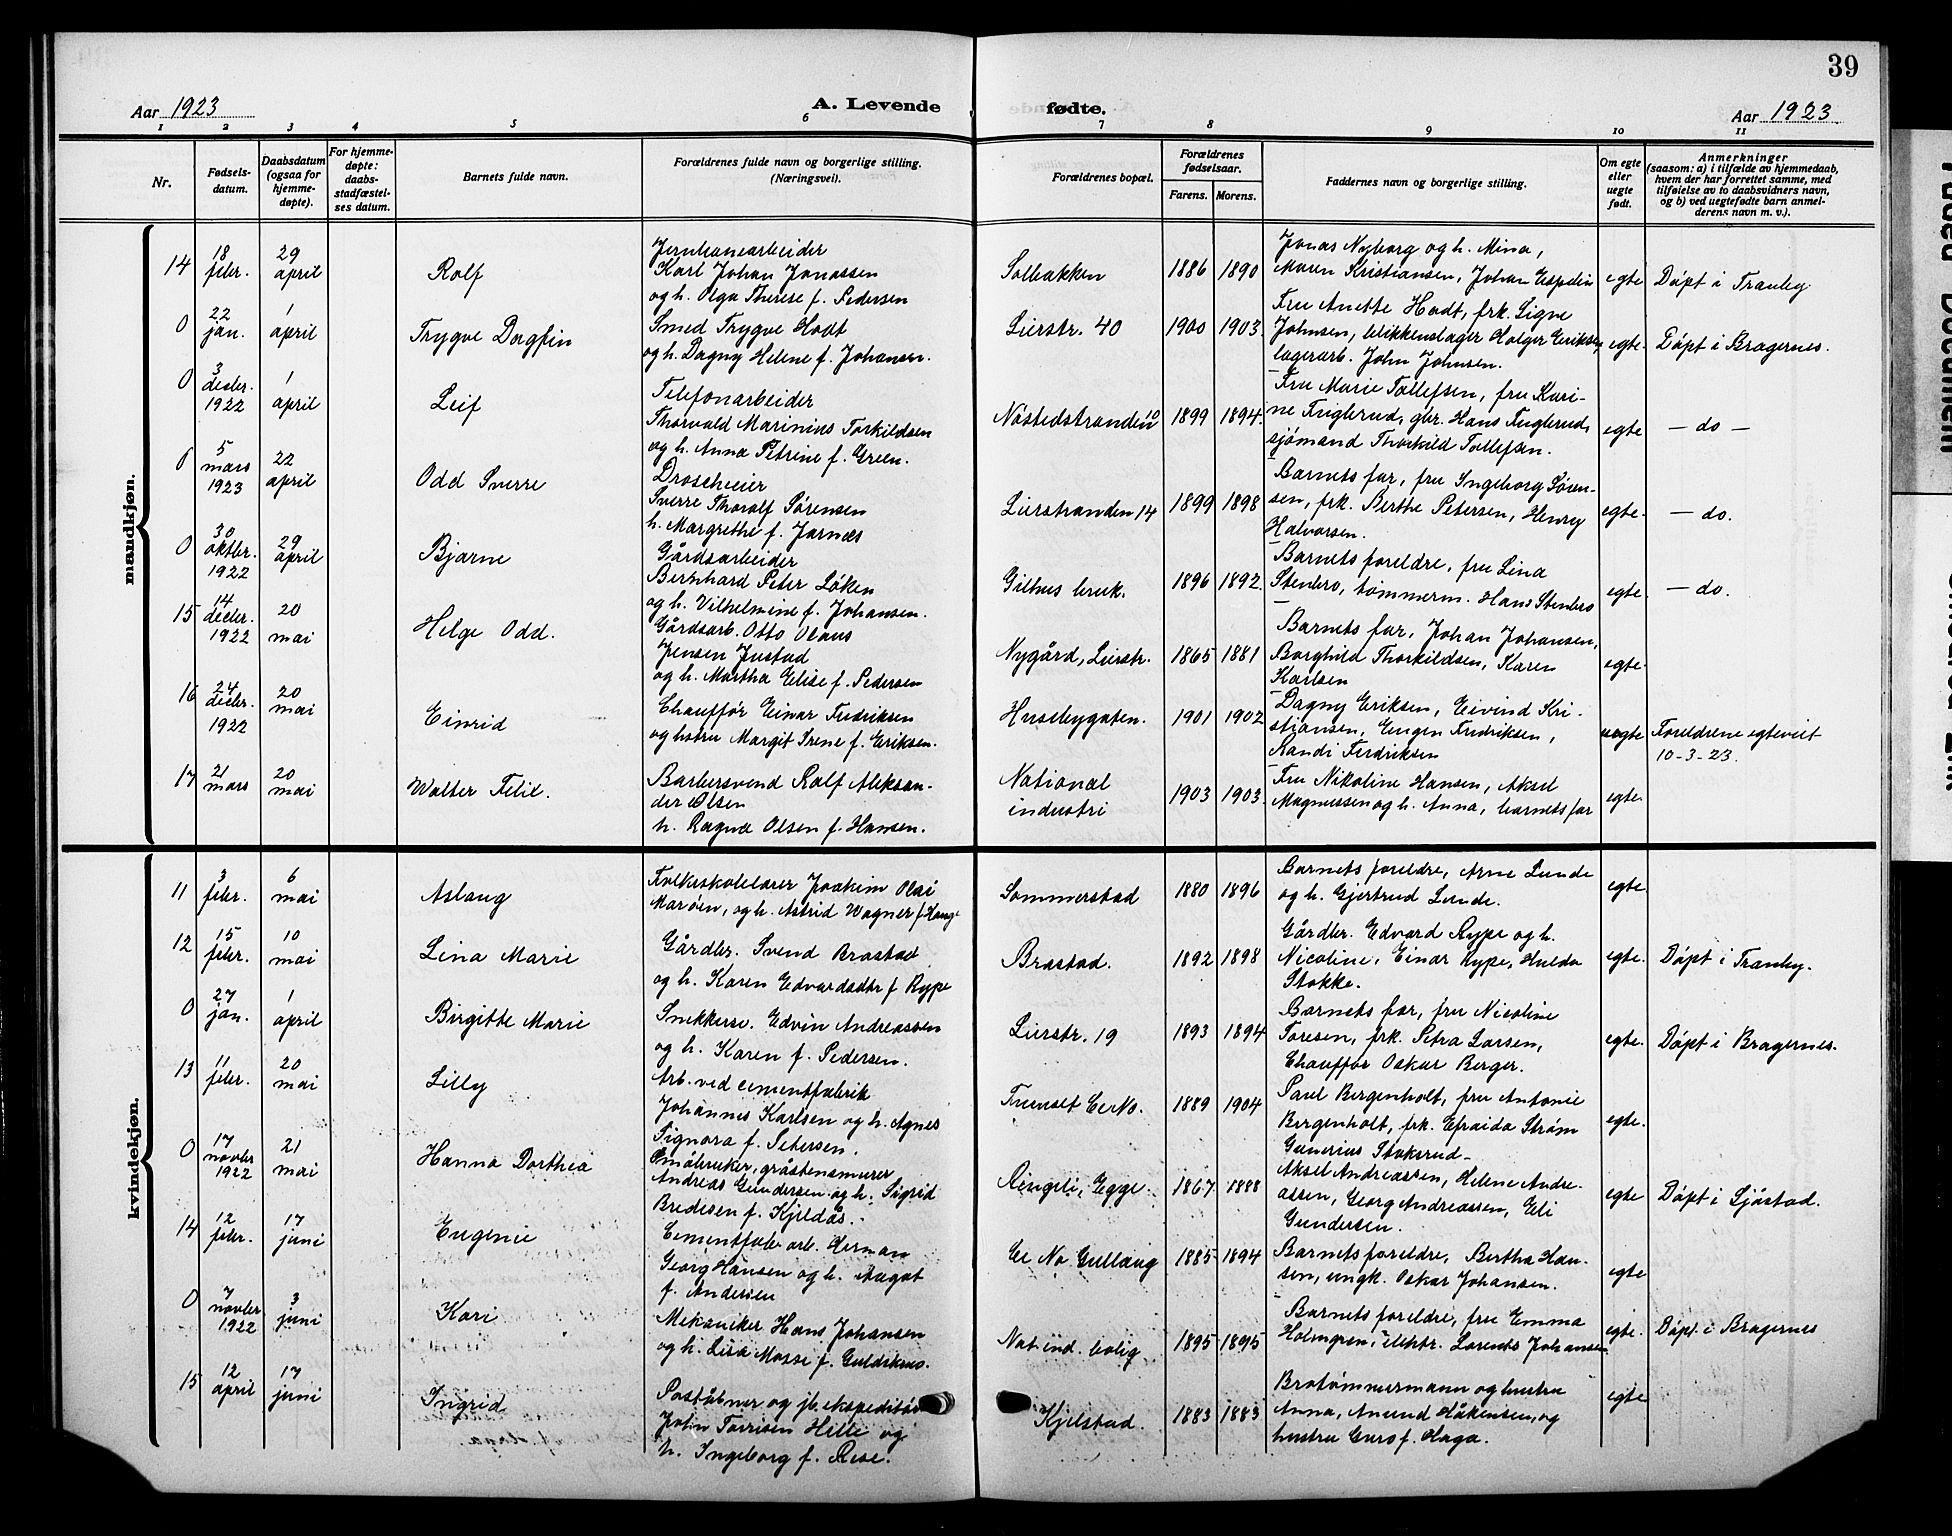 39
Aar 1923
A. Levende
fødte.
Aar 1923
1 2 3 4 5 6 7 8 9 10 11
Nr.
Fødsels-
datum.
Daabsdatum
(ogsaa for
hjemme-
døpte).
For hjemme-
døpte:
daabs-
stadfæstel-
ses datum.
Barnets fulde navn.
Forældrenes fulde navn og borgerlige stilling.
(Næringsvei).
Forældrenes bopæl.
Forældrenes
fødselsaar.
Farens. Morens.
Faddernes navn og borgerlige stilling.
Om egte
eller
uegte
født.
Anmerkninger
(saasom: a) i tilfælde av hjemmedaab,
hvem der har forrettet samme, med
tilføielse av to daabsvidners navn,
og b) ved uegtefødte barn anmel-
derens navn m. v.).
mandkjøn.
14 18 febr. 29 april Rolf
Jernbanearbeider
Karl Johan Jonassen
og h. Olga Therese f. Pedersen
Solbakken 1886 1890
Jonas Nyborg og h. Mina,
Maren Kristiansen, Johan Espelin
egte Døpt i Tranby
0 22 jan. 1 april Trygve Dagfin
Smed Trygve Hodt
og h. Dagny Helene f. Johansen.
Lierstr. 40 1900 1903.
Fru Anette Hodt, frk. Signe
Johnsen, blikkenslager Holger Eriksen
lagerarb. John Johnsen.
egte. Døpt i Bragernes.
0 3 decbr. 1922 1 april Leif
Telefonarbeider
Thorvald Marinius Torkildsen
og h. Anna Petrine f. Green.
Nøstedstranden 10 1899 1894.
Fru Marie Tollefsen, fru Kari-
ne Fuglerud, gbr. Hans Fuglerud,
sjømand Thorkild Tollefsen.
egte — do —
0 5 mars 1923 22 april Odd Sverre
Droscheeier
Sverre Thoralf Sørensen
h. Margrethe f. Jarnæs
Lierstranden 14 1899 1898
Barnets far, fru Ingeborg Søren-
sen, frk. Berthe Petersen, Henry
Halvorsen.
egte. — do.
0 30 oktbr. 1922 29 april Bjarne
Gårdsarbeider
Bernhard Peter Løken
og h. Vilhelmine f. Johansen.
Gilhus bruk. 1896 1892.
Barnets foreldre, fru Lina
Stenbro, tømmerm. Hans Stenbro
egte. — do.
15 14 decbr. 1922 20 mai Helge Odd.
Gårdsarb. Otto Olaus
Jensen Justad
og h. Martha Elise f. Pedersen
Nygård, Lierstr. 1865 1881
Barnets far, Johan Johansen,
Borghild Thorkildsen, Karen
Karlsen
egte.
16 24 decbr. 1922 20 mai Einrid
Chauffør Einar Fredriksen
og hstru Margit Irene f. Eriksen.
Husebygaten. 1901 1902
Dagny Eriksen, Eivind Kri-
stjansen, Eugen Fredriksen,
Randi Fredriksen
uegte Foreldrene egteviet
10-3-23.
17 21 mars 20 mai Walter Felix.
Barbersvend Rolf Aleksan-
der Olsen
h. Ragna Olsen f. Hansen.
National
industri 1903 1903.
Fru Nikoline Hansen, Aksel
Magnussen og h. Anna, barnets far
egte.
kvindekjøn.
11 3 febr. 6 mai Aslaug
Folkeskolelærer Joakim Olai
Marøen, og h. Astrid Wagner f. Hauge
Sommerstad 1880 1896
Barnets foreldre, Arne Lunde
og h. Gjertrud Lunde.
egte
12 15 febr. 10 mai Lina Marie
Gårdbr. Svend Brastad
og h. Karen Edvardsdtr f Rype
Brastad. 1892 1898
Gårdbr. Edvard Rype og h.
Nicoline, Einar Rype, Hulda
Stokke.
egte. Døpt i Tranby.
0 27 jan. 1 april Birgitte Marie
Snekkersv. Edvin Andreassen
og h. Karen f. Pedersen.
Lierstr. 19 1893 1894
Barnets far, fru Nicoline
Toresen, frk. Petra Larsen,
Chauffør Oskar Berger.
egte. Døpt i Bragernes.
13 11 febr. 20 mai Lilly
Arb. ved cementfabrik
Johannes Karlsen og h. Agnes
Signora f. Petersen.
1889 1904
Paul Bergenholt, fru Antonie
Bergenholt, frk. Efraida Strøm
Gunerius Stoksrud
egte.
0 17 novbr 1922 21 mai Hanna Dorthea
Småbruker, gråstensmurer
Andreas Gundersen og h. Sigrid
Bredesen f. Kjeldås.
Ringeli, Egge. 1867 1888
Aksel Andreassen, Helene Andre-
assen, Georg Andreassen, Eli
Gundersen.
egte Døpt i Sjåstad.
14 12 febr. 17 juni Eugenie
Cementfabr arb. Herman
Georg Hansen og h. August
f. Andersen
Ce No Gullaug 1885 1894
Barnets foreldre, Bertha Han-
sen, ungk. Oskar Johansen.
egte
0 7 novbr 1922 3 juni Kari
Mekaniker Hans Johansen
og h. Lisa Mosse f. Guldiksen.
Nat ind. bolig 1895 1895
Barnets foreldre, fru Emma
Holmgren, elektr. Lorents Johansen
egte. Døpt i Bragernes
15 12 april 17 juni Ingrid
Poståbner og jb. ekspeditør
John Torrisen Hille og
h. Ingeborg f. Rise.
Kjelstad. 1883 1883
Brotømmermann og hustru
Anna, Amund Håkensen, og
hustru Guro f. Haga.
egte